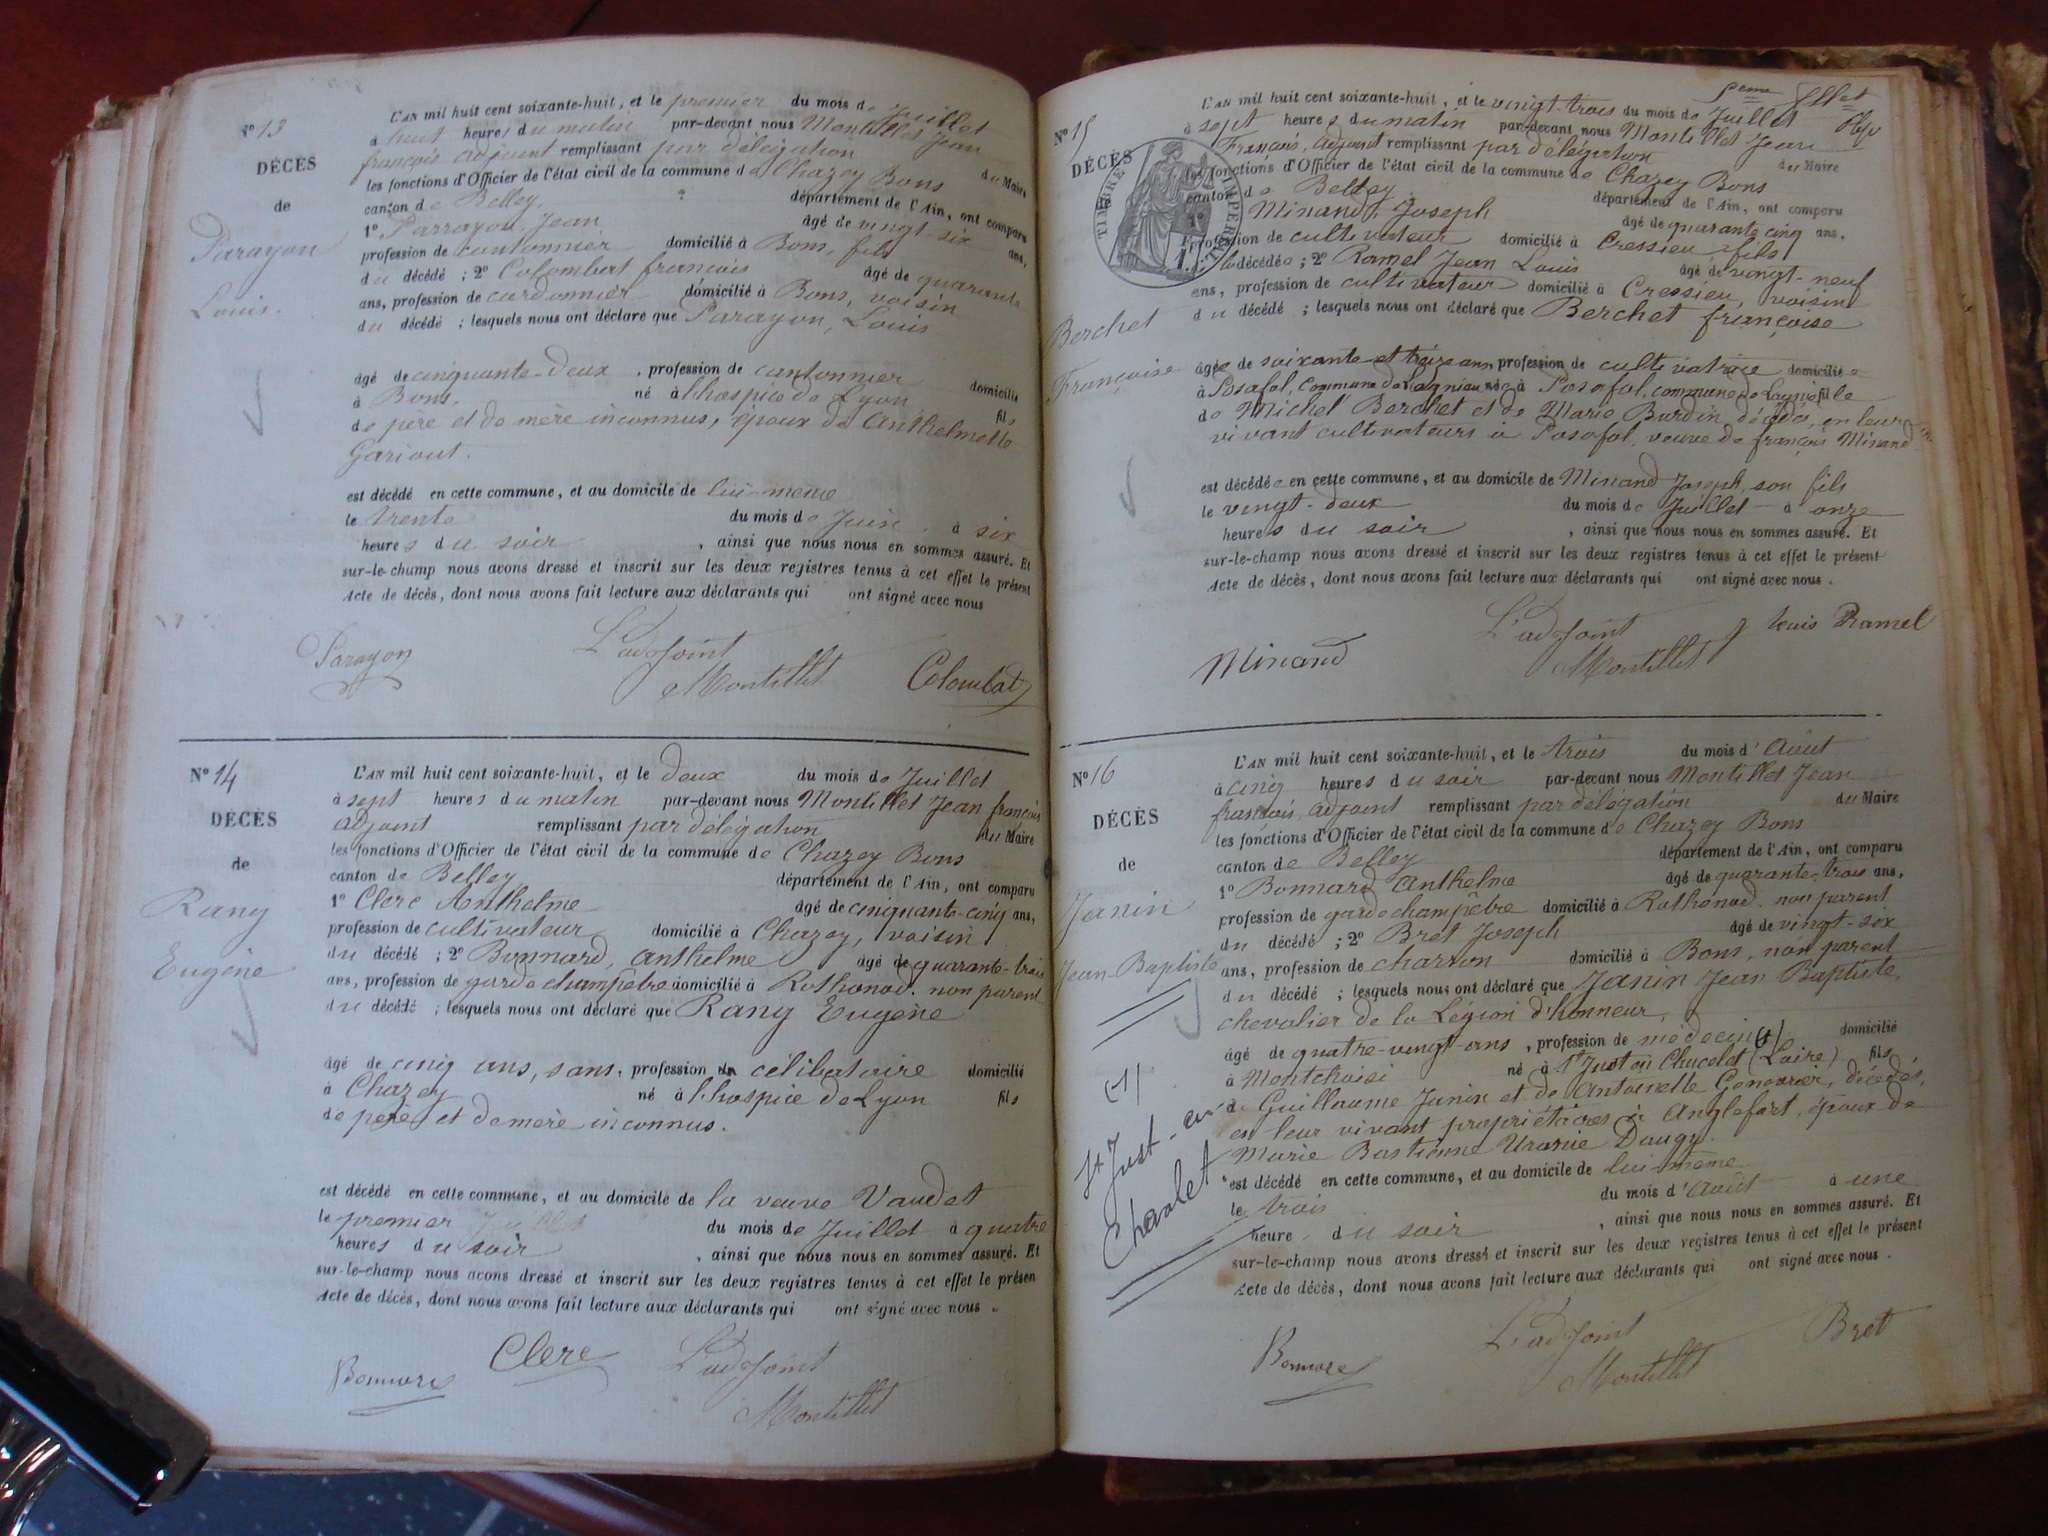 N° 13
DÉCÈS
de
Parayon
Louis.
L'AN mil huit cent soixante-huit, et le premier du mois de Juillet
à huit heures du matin par-devant nous Montillet Jean
françois adjoint remplissant par délégation du Maire
les fonctions d'Officier de l'état civil de la commune de Chazey Bons
canton de Belley. département de l'Ain, ont comparu
1° Parrayon Jean âgé de vingt-six ans,
profession de cantonnier domicilié à Bons, fils
du décédé ; 2° Colombat françois âgé de quarante
ans, profession de cordonnier domicilié à Bons, voisin
du décédé ; lesquels nous ont déclaré que Parayon, Louis
âgé de cinquante-deux , profession de cantonnier domicilié
à Bons. né à l'hospice de Lyon fils
de père et de mère inconnus, époux de Anthelmette
Gariout.
est décédé en cette commune, et au domicile de lui-meme
le trente du mois de Juin à six
heures du soir , ainsi que nous nous en sommes assuré. Et
sur-le-champ nous avons dressé et inscrit sur les deux registres tenus à cet effet le présent
Acte de décès, dont nous avons fait lecture aux déclarants qui ont signé avec nous
Parayon L'adjoint Montillet Colombat
N° 14
DÉCÈS
de
Rany
Eugène
L'AN mil huit cent soixante-huit, et le deux du mois de Juillet
à sept heures du matin par-devant nous Montillet Jean françois
adjoint remplissant par délégation du Maire
les fonctions d'Officier de l'état civil de la commune de Chazey Bons
canton de Belley département de l'Ain, ont comparu
1° Clerc Anthelme âgé de cinquante-cinq ans,
profession de cultivateur domicilié à Chazey, voisin
du décédé ; 2° Bonnard, Anthelme âgé de quarante-trois
ans, profession de garde champêtre domicilié à Rothonod. non parent
du décédé ; lesquels nous ont déclaré que Rany Eugène
âgé de cinq ans, sans, profession célibataire domicilié
à Chazey né à l'hospice de Lyon fils
de père et de mère inconnus.
est décédé en cette commune, et au domicile de la veuve Vaudet
le premier du mois de Juillet à quatre
heures du soir , ainsi que nous nous en sommes assuré. Et
sur-le-champ nous avons dressé et inscrit sur les deux registres tenus à cet effet le présen
Acte de décès, dont nous avons fait lecture aux déclarants qui ont signé avec nous .
Bonnard Clerc L'adjoint
Montillet
N° 15
DÉCÈS
TIMBRE IMPERIAL
Berchet
Françoise
L'AN mil huit cent soixante-huit, et le vingt-trois du mois de Juillet
à sept heures du matin par-devant nous Montillet Jean
François, adjoint remplissant par délégation du Maire
les fonctions d'Officier de l'état civil de la commune de Chazey Bons
canton de Belley département de l'Ain, ont comparu
1° Minand, Joseph âgé de quarante cinq ans,
profession de cultivateur domicilié à Cressieu fils
de la décédée ; 2° Ramel Jean Louis âgé de vingt-neuf
ans, profession de cultivateur domicilié à Cressieu, voisin
du décédé ; lesquels nous ont déclaré que Berchet françoise
âgée de soixante et treize ans profession de cultivatrice domiciliée
à Posafol, Commune de Lagnieu née à Posafol, commune de Lagnieu fille
de Michel Berchet et de Marie Burdin décédés, en leur
vivant cultivateurs à Posafol, veuve de françois Minand
est décédée en cette commune, et au domicile de Minand Joseph, son fils
le vingt-deux du mois de Juillet à onze
heures du soir , ainsi que nous nous en sommes assuré. Et
sur-le-champ nous avons dressé et inscrit sur les deux registres tenus à cet effet le présent
Acte de décès, dont nous avons fait lecture aux déclarants qui ont signé avec nous .
Minand L'adjoint Montillet J Louis Ramel
N° 16
DÉCÈS
de
Janin
Jean Baptiste
(1)
St Just-en-
Chevalet
L'AN mil huit cent soixante-huit, et le trois du mois d'Août
à cinq heures du soir par-devant nous Montillet Jean
françois, adjoint remplissant par délégation du Maire
les fonctions d'Officier de l'état civil de la commune de Chazey Bons
canton de Belley département de l'Ain, ont comparu
1° Bonnard Anthelme âgé de quarante-trois ans,
profession de garde champêtre domicilié à Rothonod. non parent
du décédé ; 2° Bret Joseph âgé de vingt-six
ans, profession de charron domicilié à Bons, non parent
du décédé ; lesquels nous ont déclaré que Janin Jean Baptiste,
chevalier de la Légion d'honneur,
âgé de quatre-vingt-ans , profession de médecin domicilié
à Montchoisi né à St Just en Chucelet (Loire) fils
de Guillaume Janin et de Antoinette Genevrier, décédés,
en leur vivant propriétaires à Anglefort, époux de
Marie Bastienne Uranie Daugy.
est décédé en cette commune, et au domicile de lui-même
le trois du mois d'Août à une
heure du soir , ainsi que nous nous en sommes assuré. Et
sur-le-champ nous avons dressé et inscrit sur les deux registres tenus à cet effet le présent
Acte de décès, dont nous avons fait lecture aux déclarants qui ont signé avec nous .
Bonnard L'adjoint Montillet Bret